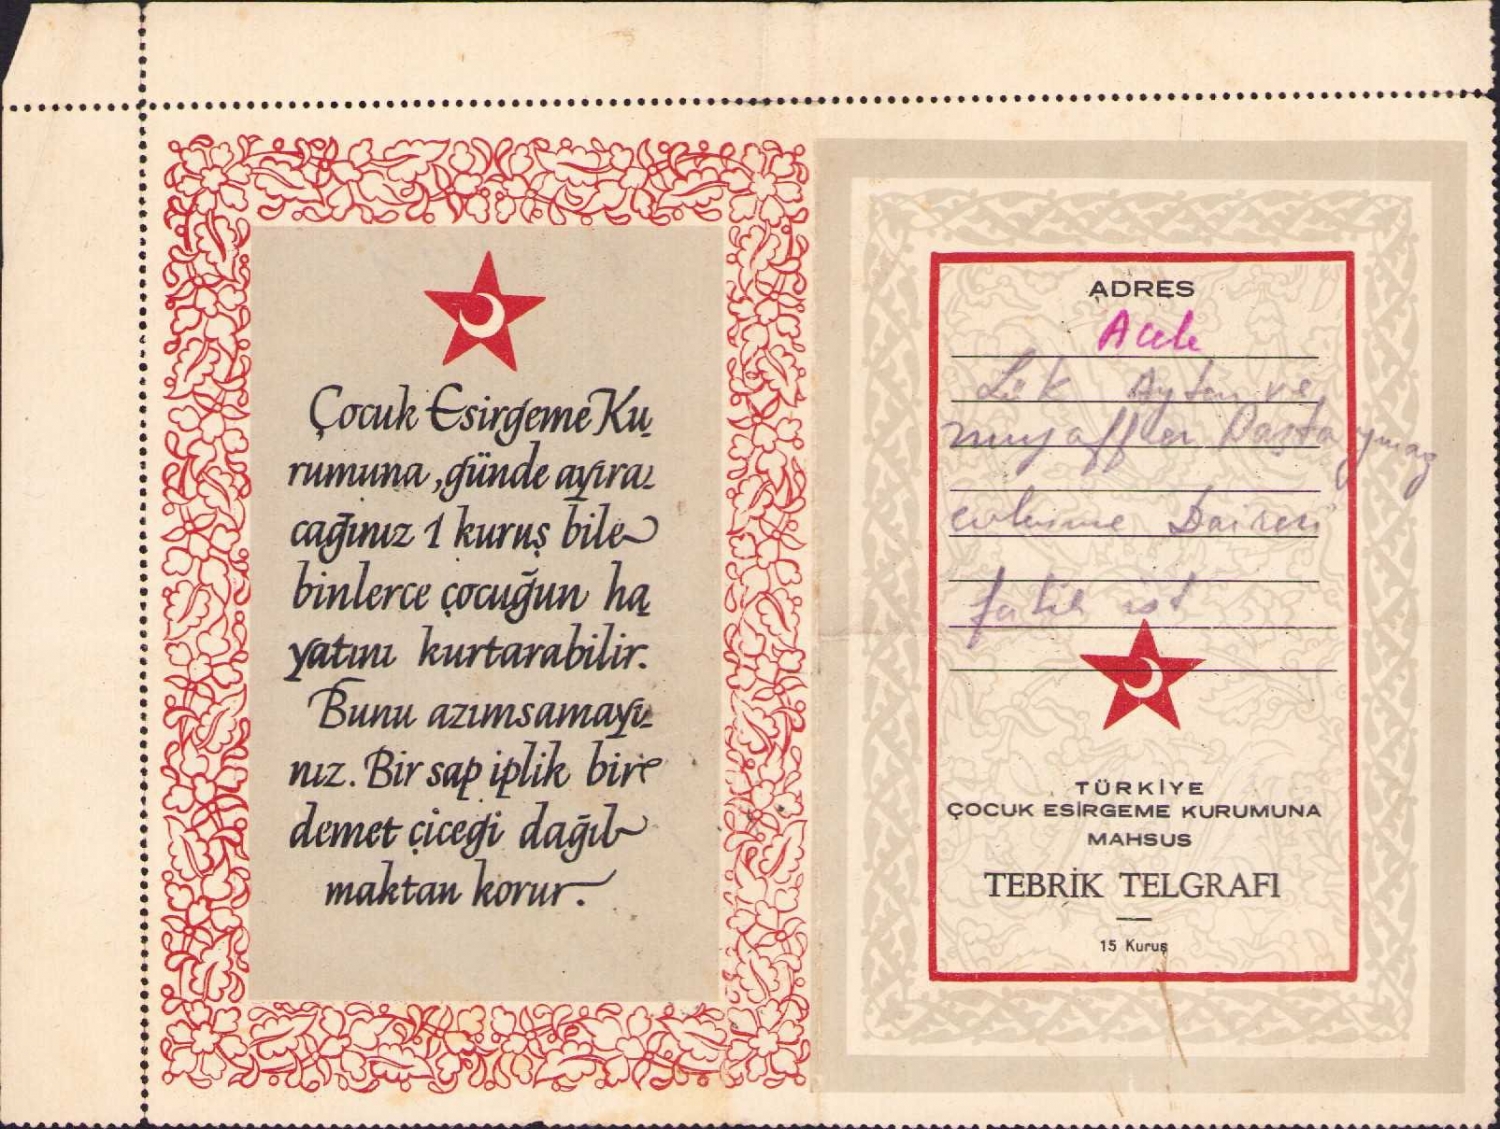 Çocuk Esirgeme Ku-
rumuna, günde ayıra-
cağınız 1 kuruş bile
binlerce çocuğun ha-
yatını kurtarabilir.
Bunu azımsamayı-
nız. Bir sap iplik bir
demet çiceği dağıl-
maktan korur.
ADRES
Acele
Ayten ve
muzaffer
evlenme Dairesi
fatih ist
TÜRKİYE
ÇOCUK ESİRGEME KURUMUNA
MAHSUS
TEBRİK TELGRAFI
15 Kuruş